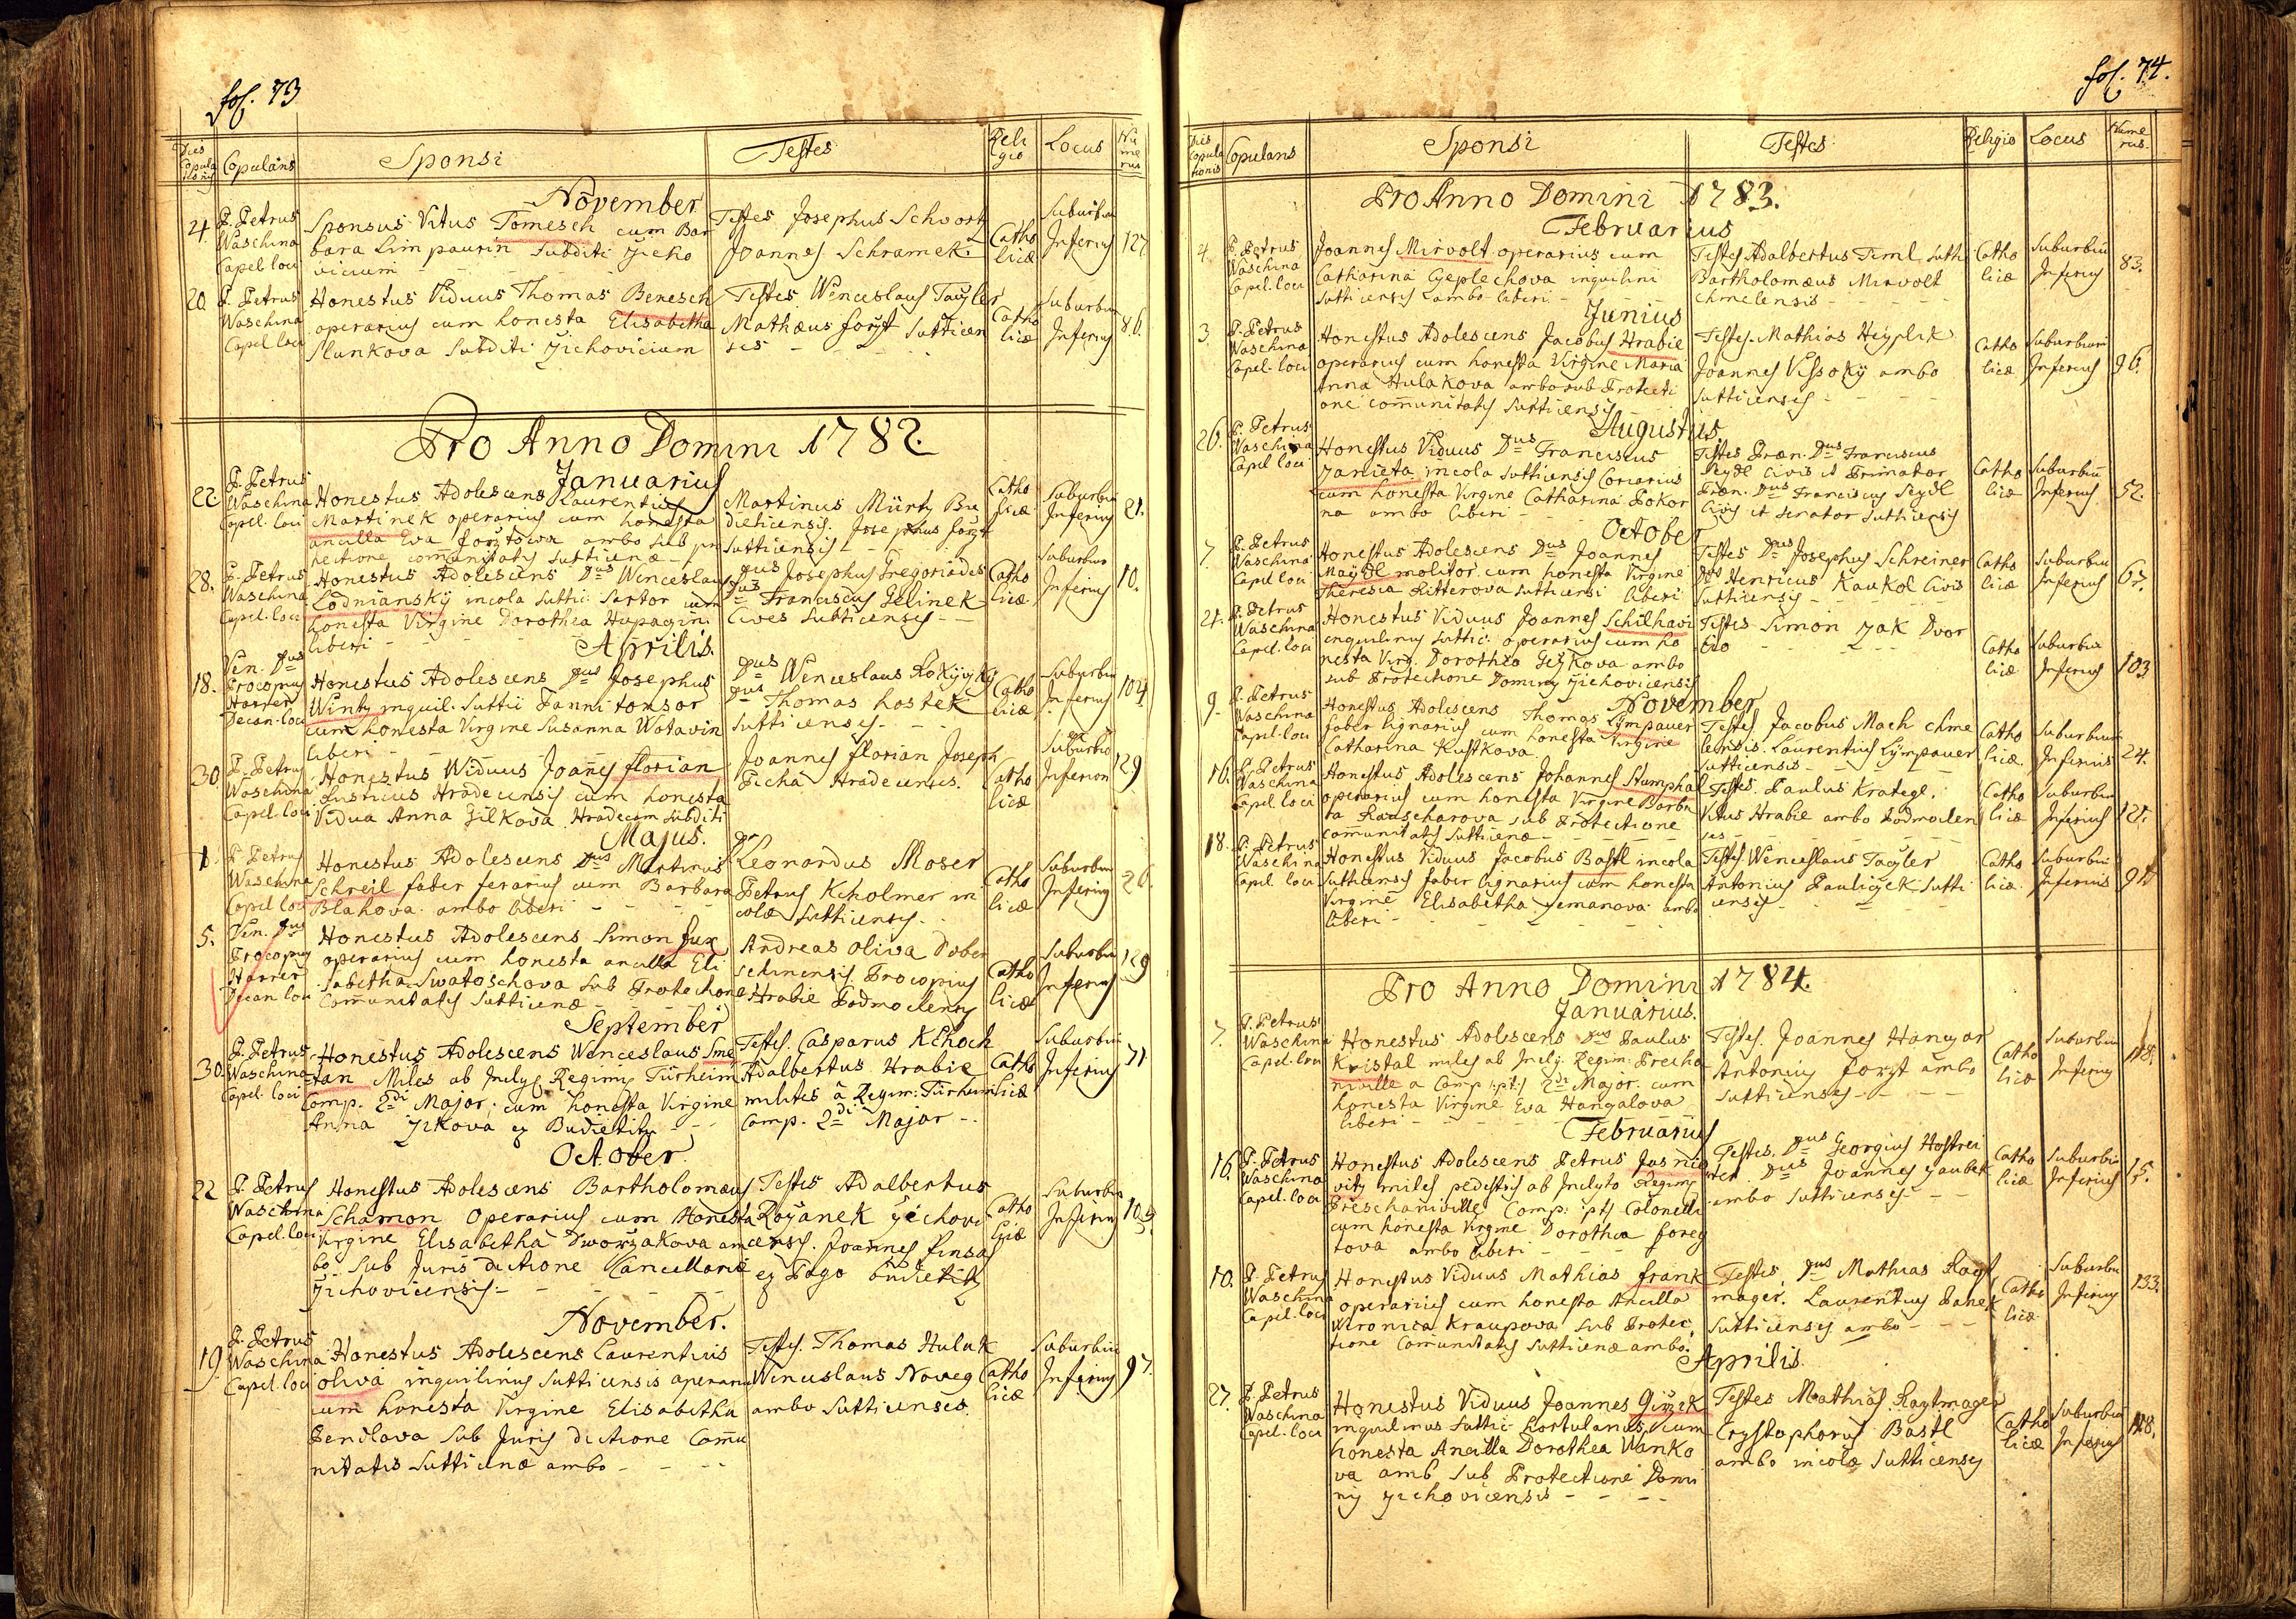 fol. 73
Dies Copulationis
Copulans
Sponsi
Testes
Religio
Locus
Numerus
November
4.
P. Petrus
Waschina
Capel. loci
Sponsus Vitus Tomesch cum Bar
bara Limpaurin Subditi Zicho
vicium
Testes Josephus Schwortz
Joannes Schramek
Catho
licæ
Suburbiu
Inferius
127
20.
P. Petrus
Waschina
Capel. loci
Honestus Viduus Thomas Benesch
operarius cum honesta Elisabetha
Slunkova Subditi Zichovicium
Testes Wenceslaus Tayler
Mathæus forÿt Sutticen
ses
Catho
licæ
Suburbiu
Inferius
86.
Pro Anno Domini 1782.
Januarius
22
P. Petrus
Waschina
Capel. loci
Honestus Adolescens Laurentius
Martinek operarius cum honesta
ancilla Eva forÿtowa ambo sub pro
tectione comunitatis sutticenæ
Martinus Mürty Bu
dieticensis. Josephus forÿt
sutticensis
Catho
licæ
Suburbiu
Inferius
21.
28.
P. Petrus
Waschina
Capel. loci
Honestus Adolescens Dus Wenceslaus
Lodnianskÿ incola Suttic: Sartor cum
honesta Virgine Dorothea
liberi
Dus Josephus Gregoriades
Dus Franciscus Gelinek
Cives Sutticenses
Catho
licæ
Suburbiu
Inferius
10.
Aprilis.
18.
Ven. Dus
Procopius
Harrer
Decan. loci
Honestus Adolescens Dus Josephus
Winty inquil. Suttic Pannitonsor
cum honesta Virgine Susanna Wotavin
liberi
Dus Wenceslaus
Dus Thomas Kostek
sutticenses
Catho
licæ
Suburbiu
Inferius
104
30
P. Petrus
Waschina
Capel. loci
Honestus Widuus Joañes florian
Rusticus Hradecensis cum honesta
Vidua Anna Gilkova Hradecem Subditi
Joannes florian Joseph
Picha Hradecences.
Catho
licæ
Suburbio
Inferiori
129
Majus.
1
P. Petrus
Waschina
Capel loci
Honestus Adolescens Dus Martinus
Schreil faber ferarius cum Barbara
Blahova ambo liberi
Leonardus Moser
Petrus Kcholmer in
colæ sutticenses
Catho
licæ
Suburbiu
Inferius
26.
5.
Ven. Dus
Procopius
Harrer
Decan loci
Honestus Adolescens Simon fux
operarius cum honesta ancilla Eli
sabetha Swatoschova sub Protectione
Comunitatis Sutticenæ
Andreas Oliva Dober
schinensis Procopius
Hrabie Podmoclensis
Catho
licæ
Suburbiu
Inferius
129
September
30.
P. Petrus
Waschina
Capel. loci
Honestus Adolescens Wenceslaus Sme
tan Miles ab Inclyt Regim: Türheim
Comp. 2di Major. cum honesta Virgine
Anna Zikova ex Budietitz
Testes. Casparus Kchoch
Adalbertus Hrabie
milites à Regim: Türheim
Comp. 2di Major
Catho
licæ
Suburbiu
Inferius
71
October
22
P. Petrus
Waschina
Capel. loci
Honestus Adolescens Bartholomæus
Schamon Operarius cum Honesta
Virgine Elisabetha Dworzakova am
bo sub Juris dictione Cancellariæ
Zichovicensis
Testes Adalbertus
Royanek Zichovi
censis. Joannes Pinsas
ex Pago Budietitz
Catho
licæ
Suburbiu
Inferius
November.
19.
P. Petrus
Waschina
Capel. loci
Honestus Adolescens Laurentius
oliva inquilinus Sutticensis operarius
cum honesta Virgine Elisabetha
Penclova sub Juris dictione Comu
nitatis Sutticenæ ambo
Testes. Thomas Hulak
Wenceslaus Noveg
ambo Sutticenses
Catho
licæ
Suburbiu
Inferius
97.
fol. 74.
Dies Copulationis
Copulans
Sponsi
Testes
Religio
Locus
Numerus.
Pro Anno Domini 1783.
Februarius
4.
P. Petrus
Waschina
Capel. loci
Joannes Mirvolt operarius cum
Catharina Cÿeplechova inquilini
Sutticenses ambo liberi
Testes Adalbertus Timl Sutti
Bartholomæus Mirvolt
chmelensis
Catho
licæ
Suburbiu
Inferius
83.
Junius
3.
P. Petrus
Waschina
Capel. loci
Honestus Adolescens Jacobus Hrabie
operarius cum honesta Virgine Maria
Anna Hulakova ambo sub Protecti
one comunitatis Sutticensis
Testes. Mathias Heyplik
Joannes Vissokÿ ambo
sutticenses
Catho
licæ
Suburbium
Inferius
96.
Augustus
26.
P. Petrus
Waschina
Capel loci
Honestus Viduus Dus Franciscus
Janieta incola Sutticensis Coriarius
cum honesta Virgine Catharina Pokor
na ambo liberi
Testes Præn. Dus Franciscus
Rydl Civis et Primator
Præn. Dus Franciscus Seydl
Civis et Senator Sutticensis
Catho
licæ
Suburbiu
Inferius
52.
October
7.
P. Petrus
Waschina
Capel loci
Honestus Adolescens Dus Joannes
Maÿdl molitor cum honesta Virgine
Theresia Ritterova Sutticensi liberi
Testes Dus Josephus Schreiner
Dus Henricus Kaukol Civis
Sutticensis
Catho
licæ
Suburbiu
Inferius
67.
21.
P. Petrus
Waschina
Capel. loci
Honestus Viduus Joannes Schilhavi
inquilinus Suttic: operarius cum ho
nesta Virg. Dorothea Geÿkova ambo
sub Protectione Dominÿ Zichovicensis
Testes Simon Zak Dvor
Catho
licæ
Suburbiu
Inferius
103
November
9.
P. Petrus
Waschina
Capel. loci
Honestus Adolescens Thomas Lÿmpauer
faber lignarius cum honesta Virgine
Catharina Kustkova
Testes Jacobus Mach chme
lensis. Laurentius Lÿmpauer
Sutticensis
Catho
licæ
Suburbium
Inferius
24.
16.
P. Petrus
Waschina
Capel. loci
Honestus Adolescens Johannes Stumpha
operarius cum honesta Virgine Barba
ra Rauscharova sub Protectione
Comunitatis Sutticenæ
Testes. Paulus Krategl.
Vitus Hrabie ambo Podmoclen
ses
Catho
licæ
Suburbiu
Inferius
121.
18.
P. Petrus
Waschina
Capel. loci
Honestus Viduus Jacobus Bastl incola
Sutticensis faber lignarius cum honesta
Virgine Elisabetha Zemanova ambo
liberi
Testes. Wenceslaus Tayler
Antonius Pauliczek Sutti
censes
Catho
licæ
Suburbiu
Inferius
Pro Anno Domini 1784.
Januarius.
7.
P. Petrus
Waschina
Capel. loci
Honestus Adolescens Dus Paulus
Kristal miles ab Incly: Regim: Precha
inville a Comp: 2di Major. cum
honesta Virgine Eva Hangalova
liberi
Testes. Joannes Hanzar
Antonius forÿt ambo
Sutticenses
Catho
licæ
Suburbiu
Inferius
Februarius
16.
P. Petrus
Waschina
Capel. loci
Honestus Adolescens Petrus Jusnio
vitz miles pedestris ab Inclyto Regimi
Preschainville Comp: Colonelli
cum honesta Virgine Dorothea foreÿ
tova ambo liberi
Testes. Dus Georgius Hostrei
ter Dus Joannes Zaubek
ambo Sutticenses
Catho
licæ
Suburbiu
Inferius
15.
10.
P. Petrus
Waschina
Capel. loci
Honestus Viduus Mathias frank
operarius cum honesta Ancilla
Weronica Kraupova sub Protec
tione Comunitatis Sutticenæ ambo.
Testes. Dus Mathias Rayt
mager. Laurentius Panek
Sutticenses ambo
Catho
licæ
Suburbiu
Inferius
133.
Aprilis.
27.
P. Petrus
Waschina
Capel. loci
Honestus Viduus Joannes Girzik
inquilinus Suttic: hortulanus cum
honesta Ancilla Dorothea Wanko
va amb sub Protectione Domi
nÿ Zichovicensis
Testes Mathias Raytmager
Crystophorus Bastl
ambo incolæ Sutticenses
Catho
licæ
Suburbiu
Inferius